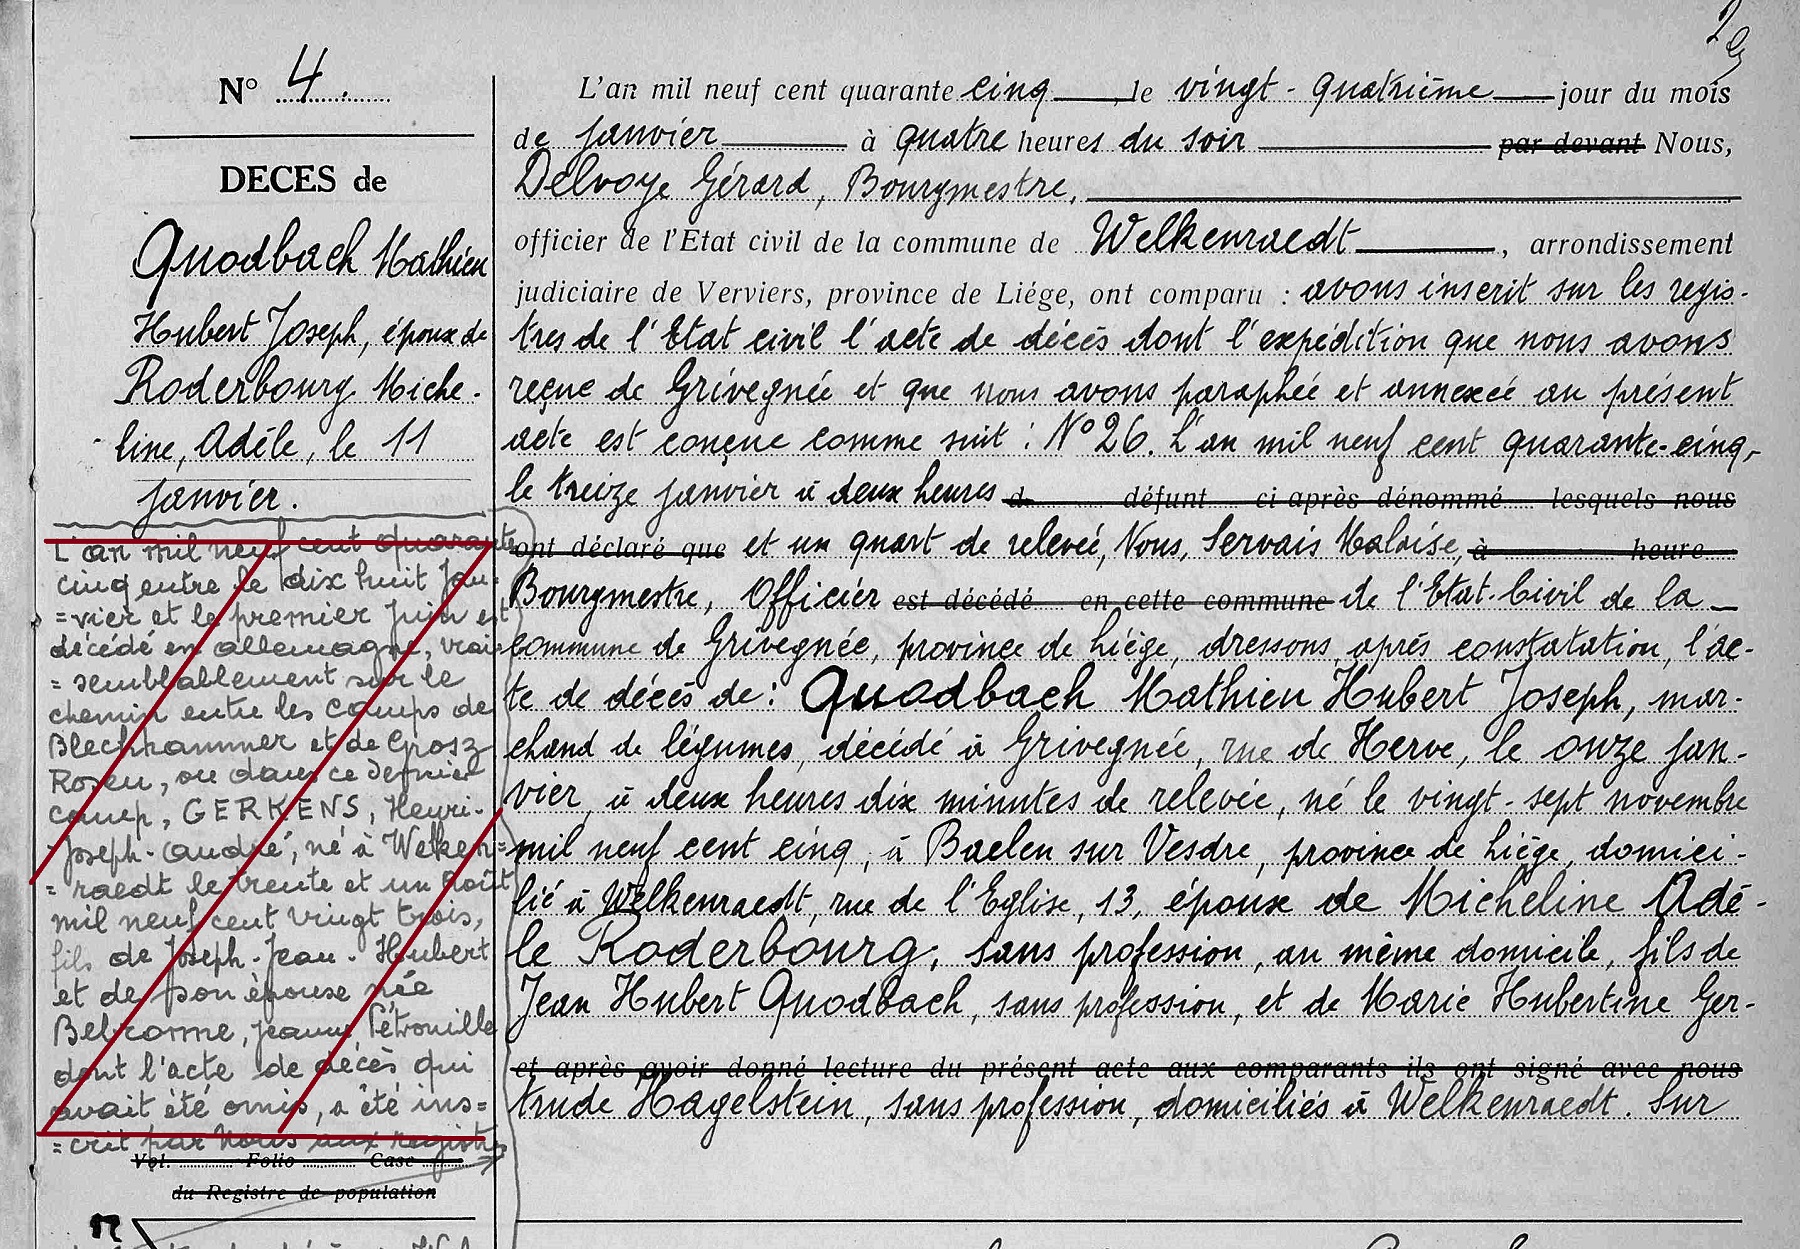 N° 4.
DECES de
Quodbach Mathieu
Hubert Joseph, époux de
Roderbourg Miche-
line, Adèle, le 11
janvier.
L'an mil neuf cent quarante
cinq entre le dix huit Jan-
=vier et le premier Juin est
décédé en allemagne, vrai-
=semblablement sur le
chemin entre les camps de
Blechhammer et de Grosz
Rosen, ou dans ce dernier
camp, GERKENS, Henri-
Joseph-André, né à Welken=
=raedt le trente et un Août
mil neuf cent vingt trois,
fils de Joseph-Jean-Hubert
et de son épouse née
Jeanne Pétronille
dont l'acte de décès qui
avait été omis, a été ins=
=crit par Nous aux registres
Vol. Folio Case
du Registre de population
L'an mil neuf cent quarante cinq, le vingt-quatrième jour du mois
de janvier à quatre heures du soir par devant Nous,
Delvoye Gérard, Bourgmestre,
officier de l'Etat civil de la commune de Welkenraedt, arrondissement
judiciaire de Verviers, province de Liége, ont comparu : avons inscrit sur les regis-
tres de l'Etat civil l'acte de décès dont l'expédition que nous avons
reçue de Grivegnée et que nous avons paraphée et annexée au présent
acte est conçue comme suit : N° 26. L'an mil neuf cent quarante-cinq,
le treize janvier à deux heures d défunt ci après dénommé lesquels nous
ont déclaré que et un quart de relevée, Nous, Servais Malaise, à heure
Bourgmestre, Officier est décédé en cette commune de l'Etat-Civil de la
commune de Grivegnée, province de Liège, dressons, après constatation, l'ac-
te de décès de : Quodbach Mathieu Hubert Joseph, mar-
chand de légumes, décédé à Grivegnée, rue de Herve, le onze jan-
vier, à deux heures dix minutes de relevée, né le vingt-sept novembre
mil neuf cent cinq, à Baelen sur Vesdre, province de Liège, domici-
lié à Welkenraedt, rue de l'Eglise, 13, époux de Micheline Adè-
le Roderbourg, sans profession, au même domicile, fils de
Jean Hubert Quodbach, sans profession, et de Marie Hubertine Ger-
et après avoir donné lecture du présent acte aux comparants ils ont signé avec nous
trude Hagelstein, sans profession, domiciliés à Welkenraedt. Sur